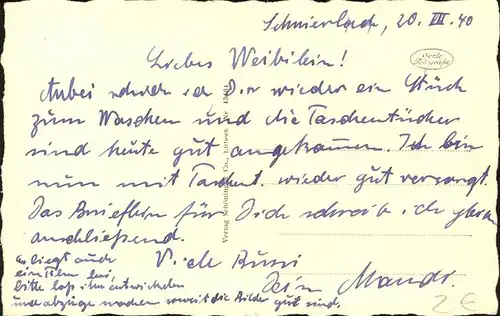 Schnierlach, 20. VIII. 40
Liebes Weibilein!
Echte Fotografie
Anbei schicke ich Dir wieder ein Stück
zum Waschen und die Taschentücher
sind heute gut angekommen. Ich bin
nun mit Taschent. wieder gut versorgt.
Das Brieflein für Dich schreib ich gleich
anschließend.
V. ich Bussi
Dein Mandi.
es liegt auch
ein Film bei,
bitte laß ihn entwickeln
und abzüge machen soweit die Bilder gut sind.
Verlag Schöning & Co., Lübeck
2€